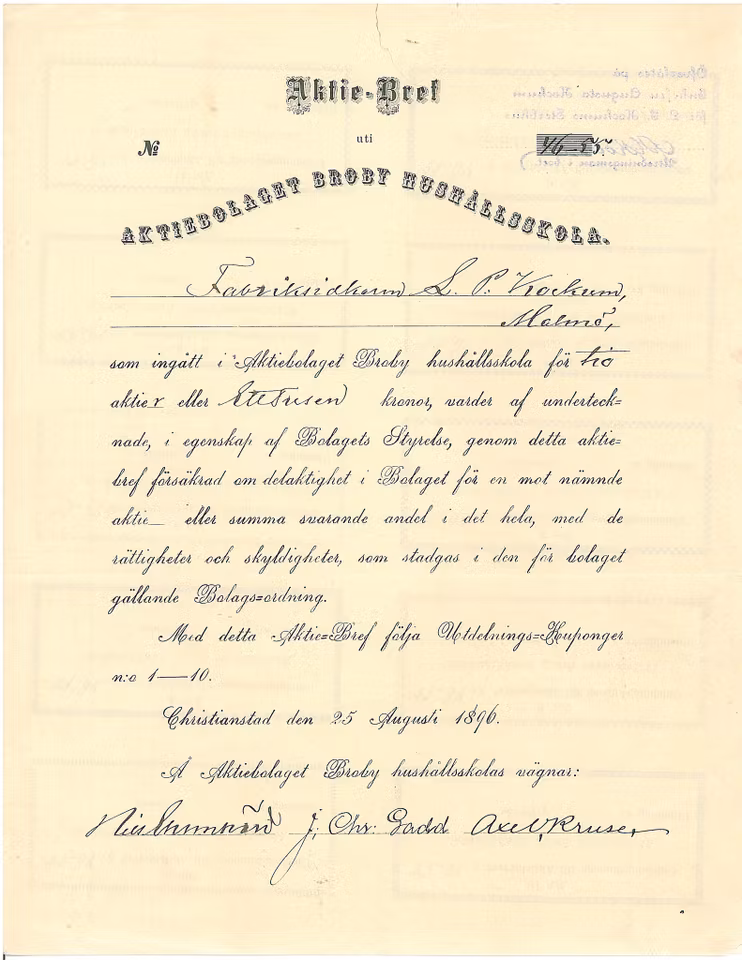 Aktie-Bref
uti
№ 46-55.
AKTIEBOLAGET BROBY HUSHÅLLSSKOLA.
Fabriksidkaren L. P. Kockum,
Malmö,
som ingått i Aktiebolaget Broby hushållsskola för tio
aktier eller Ettusen kronor, varder af underteck=
nade, i egenskap af Bolagets Styrelse, genom detta aktie=
bref försäkrad om delaktighet i Bolaget för en mot nämnde
aktie eller summa svarande andel i det hela, med de
rättigheter och skyldigheter, som stadgas i den för bolaget
gällande Bolags=ordning.
Med detta Aktie=Bref följa Utdelnings=Kuponger
n:o 1—10.
Christianstad den 25 Augusti 1896.
Å Aktiebolaget Broby hushållsskolas vägnar:
J. Chr: Gadd Axel V. Kruse